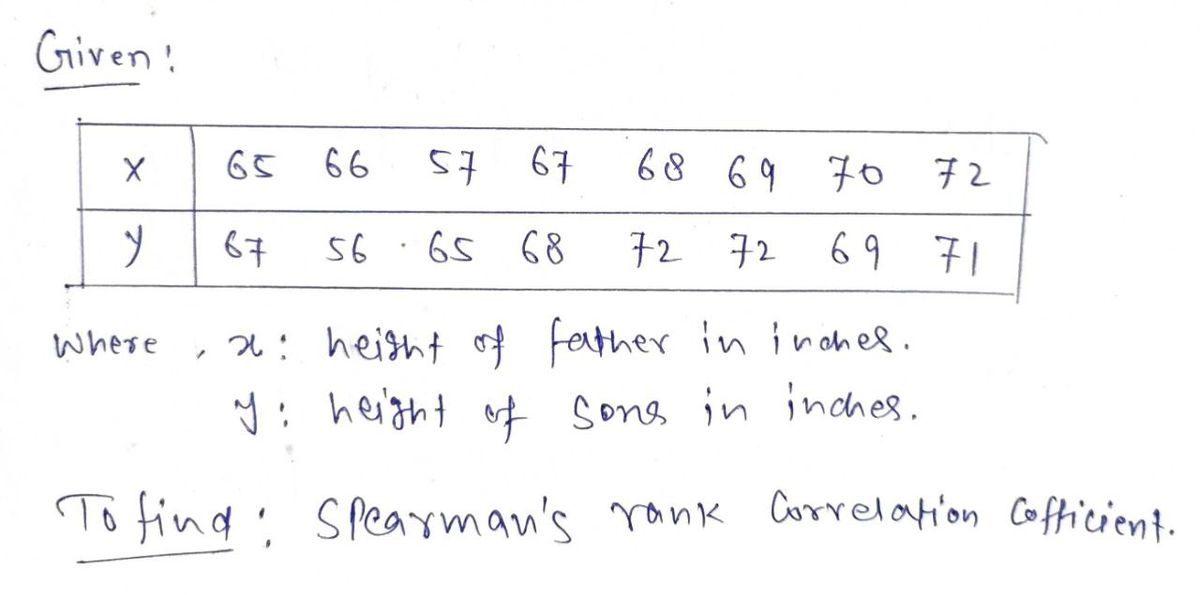 Given:
x 65 66 57 67 68 69 70 72
y 67 56 65 68 72 72 69 71
Where, x: height of father in inches.
y: height of sons in inches.
To find: Spearman's rank Correlation Cofficient.